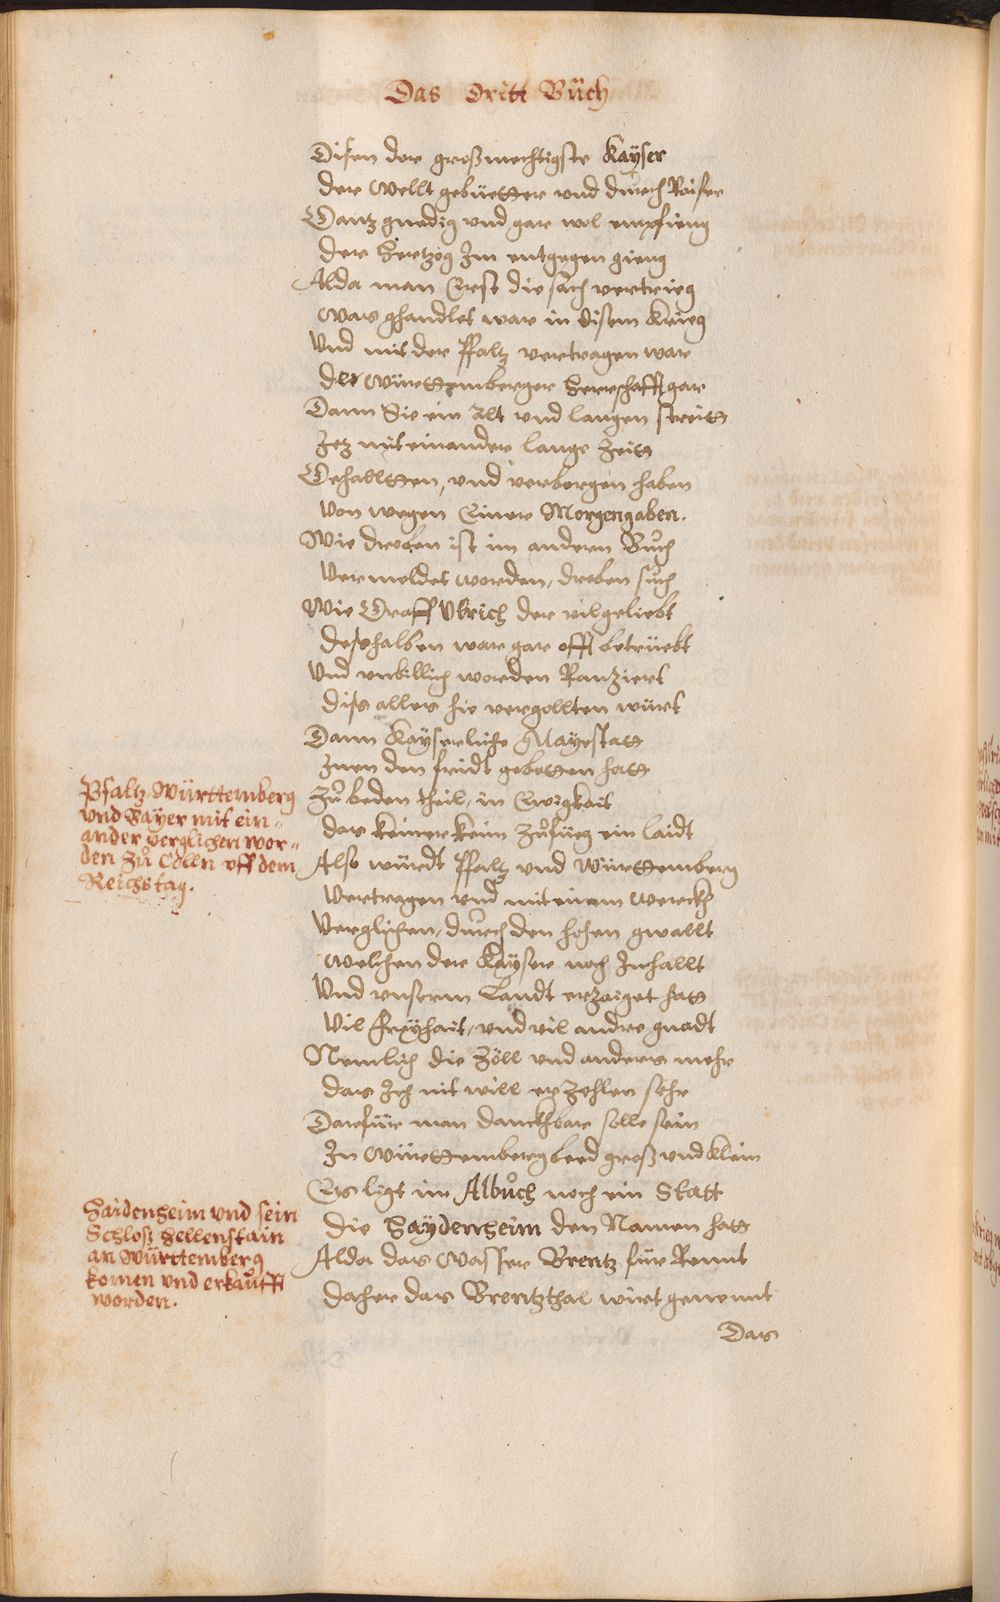 Das dritt Bůch
Disen der großmechtigste Kaÿser
der Wellt gebüetter vnd durch Raiser
Gantz gnedig vnd gar wol empfieng
der Hertzog Im entgegen gieng
Alda man Erst die sach vertrieg
Was ghandlet war in disem Krieg
Vnd mit der Pfaltz vertragen war
der Württemberger Herrschafft gar
Dann Sie ein Alt vnd langen streitt
Jetz mit einander lange Zeitt
Gehallten, vnd verborgen haben
Von wegen Einer Morgengaben.
Wie droben ist im anderen Bůch
Vermeldet worden, droben sůch
Wie Graff Vlrich der vilgeliebt
deßhalben war gar offt betrüebt
Vnd vnbillich worden Ranziert
diß alles hie vergollten würt
Dann Kaÿserliche Mayestatt
Inen den fridt gebotten hatt
Zů beden theil, in Ewigkait
das keiner keim Zůfüeg ein laidt
Also würdt Pfaltz vnd Württemberg
Vertragen vnd mit einem Werckh
Verglichen, durch den hohen gwallt
Welchen der Kaÿser noch Inhallt
Vnd vnserm Landt erzaiget hatt
Vil freÿhait, vnd vil andre gnadt
Nemlich die Zöll vnd anders mehr
das Ich nit will erzehlen sehr
Darfür man danckhbar solle sein
In Württemberg beed groß vnd klein
Es ligt im Albůch noch ein Statt
die Haÿdenheim den Namen hatt
Alda das Wasser Brentz für Rennt
daher das Brentzthal würt genennt
Das
Pfaltz, Württemberg
vnd Bayer mit ein-
ander verglichen wor-
den zů Cölln vff dem
Reichstag.
Haidenheim vnd sein
Schloß Hellenstain
an Württemberg
komen vnd erkaufft
worden.